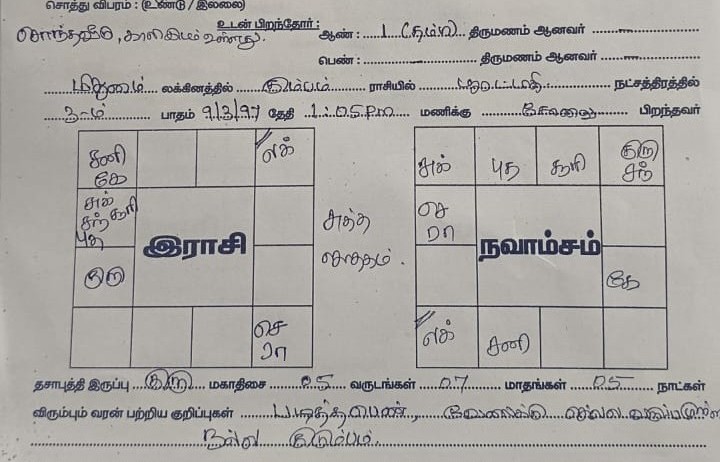 சொத்து விபரம் : (உண்டு / இல்லை)
சொந்தவீடு, காலியிடம் உள்ளது. உடன் பிறந்தோர் : ஆண் : 1 (தம்பி) திருமணம் ஆனவர்
பெண் : திருமணம் ஆனவர்
மிதுனம் லக்கினத்தில் கும்பம் ராசியில் பூரட்டாதி நட்சத்திரத்தில்
3-ம் பாதம் 9/3/97 தேதி 1:05 P.m மணிக்கு பிறந்தவர்
சனி கே லக்
சுக் சந் சூரி புத
குரு
செ ரா
இராசி
சுத்த
சாதகம்.
சுக் புத சூரி குரு சந்
செ ரா
கே
லக் சனி
நவாம்சம்
தசாபுத்தி இருப்பு குரு மகாதிசை 05 வருடங்கள் 07 மாதங்கள் 05 நாட்கள்
விரும்பும் வரன் பற்றிய குறிப்புகள் படித்த பெண், வேலைக்கு செல்ல
நல்ல குடும்பம்.